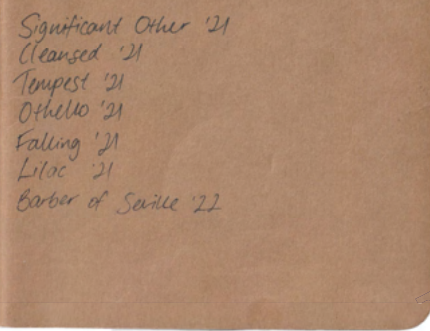 Significant Other '21
Cleansed '21
Tempest '21
Othello '21
Falling '21
Lilac '21
Barber of Seville '22